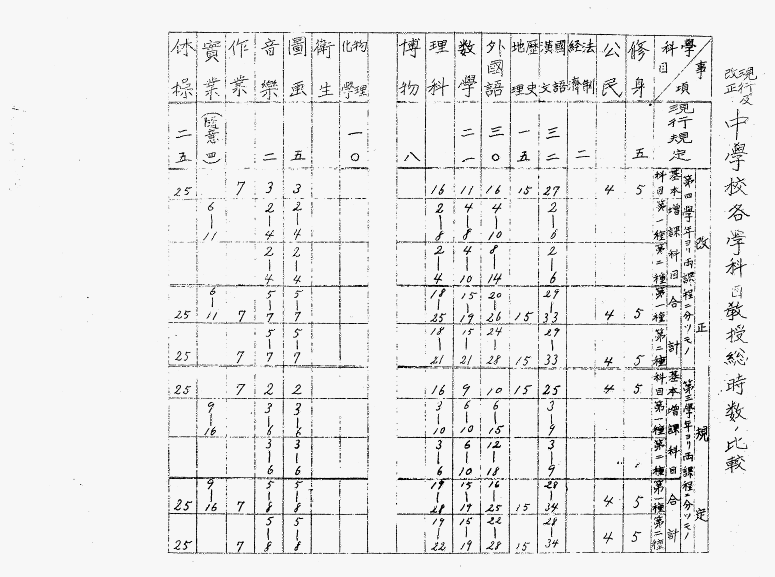 現行及
改正 中學校各學科目教授総時数ノ比較
事項 學科目 修身 公民 法制經濟 國語漢文 歷史地理 外國語 数學 理科 博物 物理化學 衛生 圖画 音樂 作業 實業 体操
現行規定 五 二 三二 一五 三〇 二一 八 一〇 五 二 (隨意四) 二五
改正規定
第四學年ヨリ両課程ニ分ツモノ
基本科目 5 4 27 15 16 11 16 3 3 7 25
増課科目 第一種 2-6 4-10 4-8 2-8 2-4 2-4 6-11
第二種 2-6 8-14 4-10 2-4 2-4 2-4
合計 第一種 5 4 29-33 15 20-26 15-19 18-25 5-7 5-7 7 6-11 25
第二種 5 4 29-33 15 24-28 15-21 18-21 5-7 5-7 7 25
第三學年ヨリ両課程ニ分ツモノ
基本科目 5 4 25 15 10 9 16 2 2 7 25
増課科目 第一種 3-9 6-15 6-10 3-10 3-6 3-6 9-16
第二種 3-9 12-18 6-10 3-6 3-6 3-6
合計 第一種 5 4 28-34 15 16-25 15-19 19-28 5-8 5-8 7 9-16 25
第二種 5 4 28-34 15 22-28 15-19 19-22 5-8 5-8 7 25